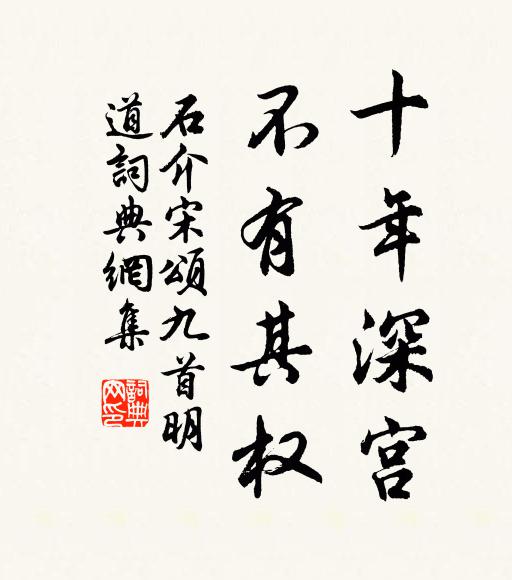 十年深宫
不有其权
石介宋頌九首明
道詞典網集
詞典
网印